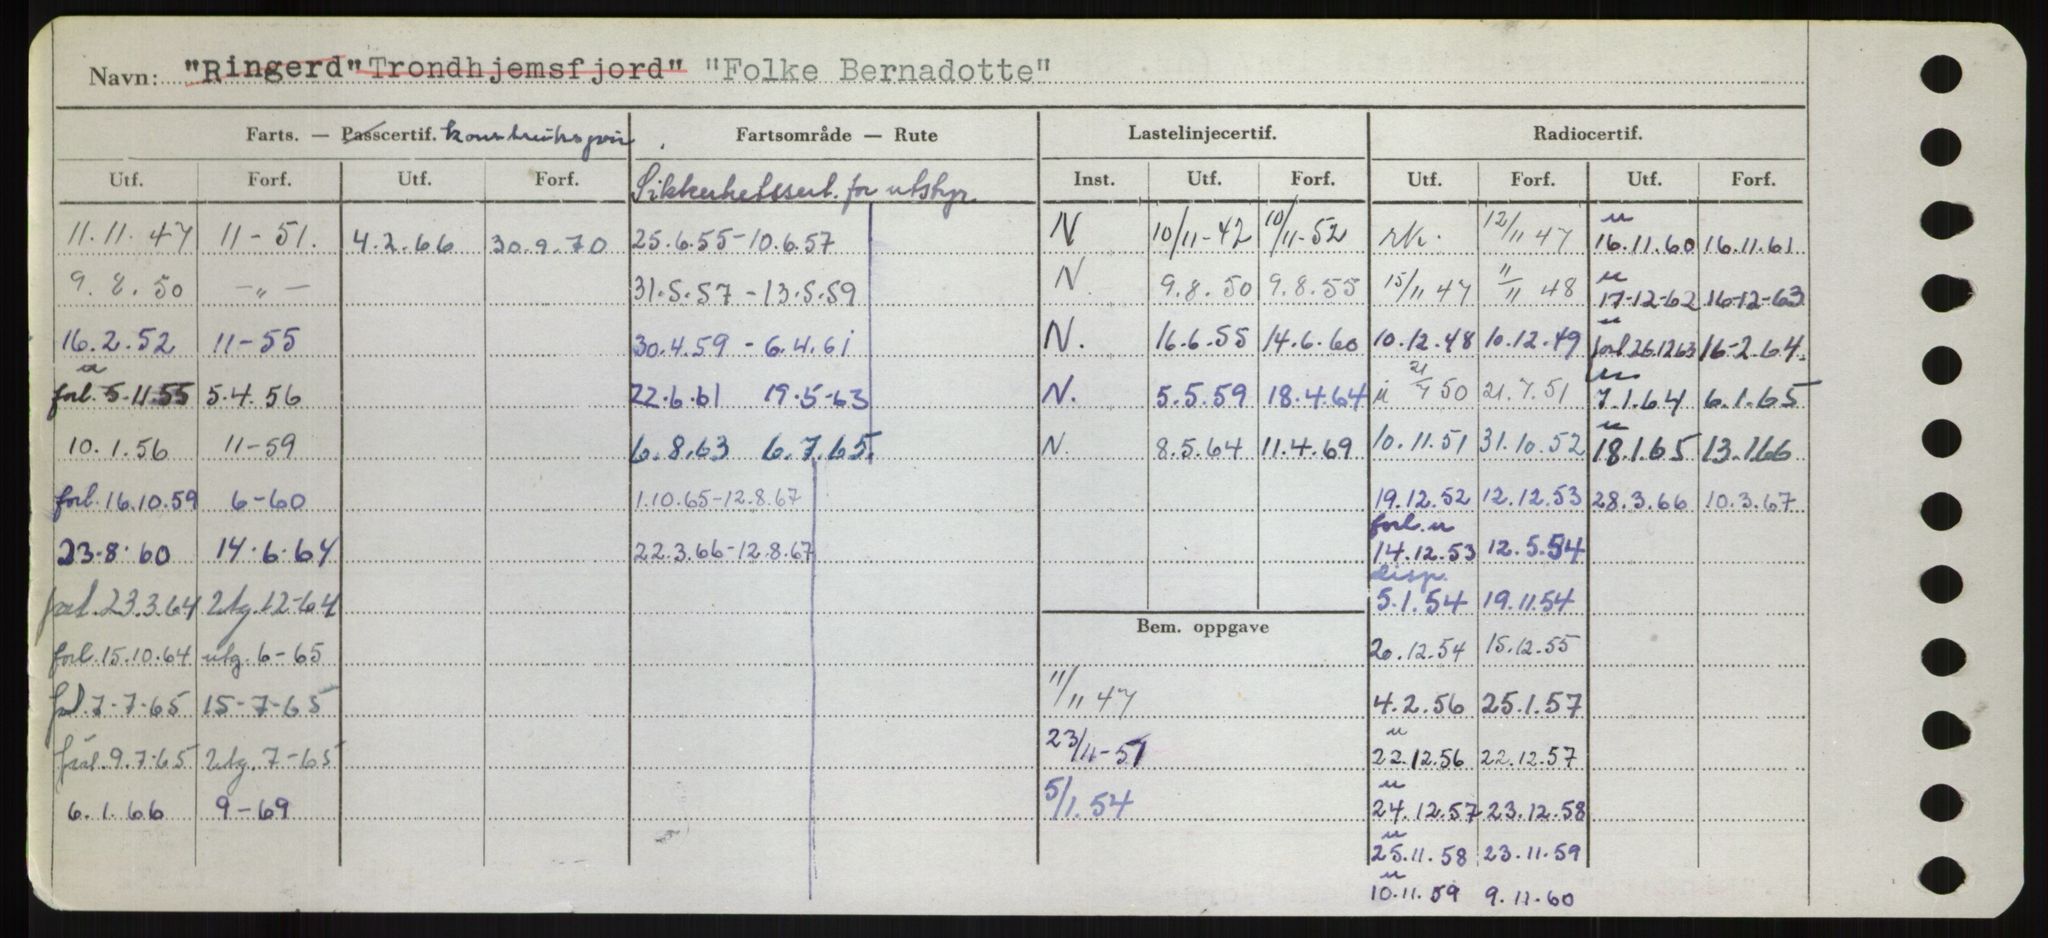 Navn: "Ringerd" Trondhjemsfjord" "Folke Bernadotte"
Farts. — Passcertif. Fartsområde — Rute Lastelinjecertif. Radiocertif.
Utf. Forf. Utf. Forf. Sikkerhetssert. for utstyr Inst. Utf. Forf. Utf. Forf. Utf. Forf.
11.11.47 11-51. 4.2.66 30.9.70 25.6.55-10.6.57 N 10/11-42 10/11-52 rk. 12/11 47 u 16.11.60 16.11.61
9.8.50 -"- 31.5.57-13.5.59 N. 9.8.50 9.8.55 15/11 47 11/11 48 u 17-12-62 16-12-63
16.2.52 11-55 30.4.59-6.4.61 N. 16.6.55 14.6.60 10.12.48 10.12.49 u forl 26.12.63 16-2.64.
u forl. 5.11.55 5.4.56 22.6.61 19.5-63 N. 5.5.59 18.4.64 u 21/7 50 21.7.51 u 7.1.64 6.1.65
10.1.56 11-59 6.8.63 6.7.65. N. 8.5.64 11.4.69 10.11.51 31.10.52 u 18.1.65 13.1.66
forl. 16.10.59 6-60 1.10.65-12.8.67 19.12.52 12.12.53 28.3.66 10.3.67
23.8.60 14.6.64 22.3.66-12.8.67 forl. u 14.12.53 12.5.54
forl. 23.3.64 Utg. 12-64 disp. 5.1.54 19.11.54
Bem. oppgave
forl. 15.10.64 utg. 6-65 20.12.54 15.12.55
forl. 7-7-65 15-7-65 11/11 47 4.2.56 25.1.57
forl. 9.7.65 Utg. 7-65 23/11-51 u 22.12.56 22.12.57
6.1.66 9-69 5/1.54 u 24.12.57 23.12.58
u 25.11.58 23.11.59
u 10.11.59 9.11.60